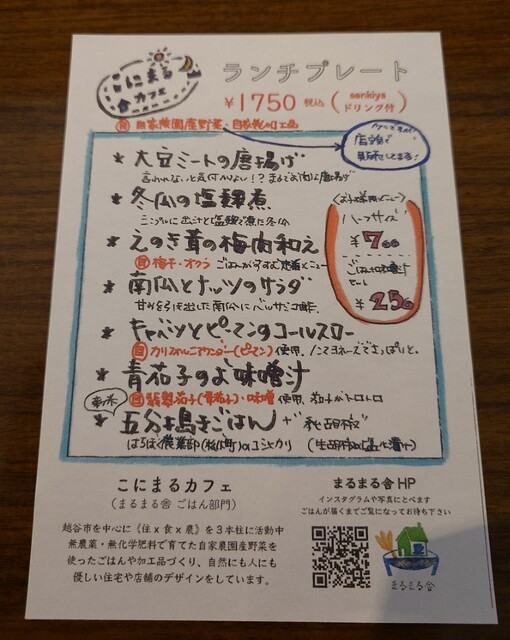 こにまる
カフェ
ランチプレート
¥1750 税込 (senkiya ドリンク付)
自 自家農園産野菜、自家製加工品
店頭で
販売してます!
* 大豆ミートの唐揚げ
言われないと気付かない!?まるでお肉な唐揚げ
* 冬瓜の塩麹煮
シンプルに出汁と塩麹で煮た冬瓜
* えのき茸の梅肉和え
自 梅干・オクラ ごはんがすすむ定番メニュー
* 南瓜とナッツのサラダ
甘みを引き出した南瓜にバルサミコ酢
* キャベツとピーマンのコールスロー
自 カリフォルニアワンダー(ピーマン)使用、ノンマヨネーズでさっぱりと。
* 青茄子のお味噌汁
自 翡翠茄子(青茄子)・味噌 使用 茄子がトロトロ
* 五分づき ごはん
のコシヒカリ
ハーフサイズ
¥700
ごはんとお味噌汁
¥250
こにまるカフェ
(まるまる舎 ごはん部門)
越谷市を中心に《住 x 食 x 農》を3本柱に活動中
無農薬・無化学肥料で育てた自家農園産野菜を
使ったごはんや加工品づくり、自然にも人にも
優しい住宅や店舗のデザインをしています。
まるまる舎 HP
インスタグラムや写真にとべます
ごはんが届くまでご覧になってお待ち下さい
まるまる舎